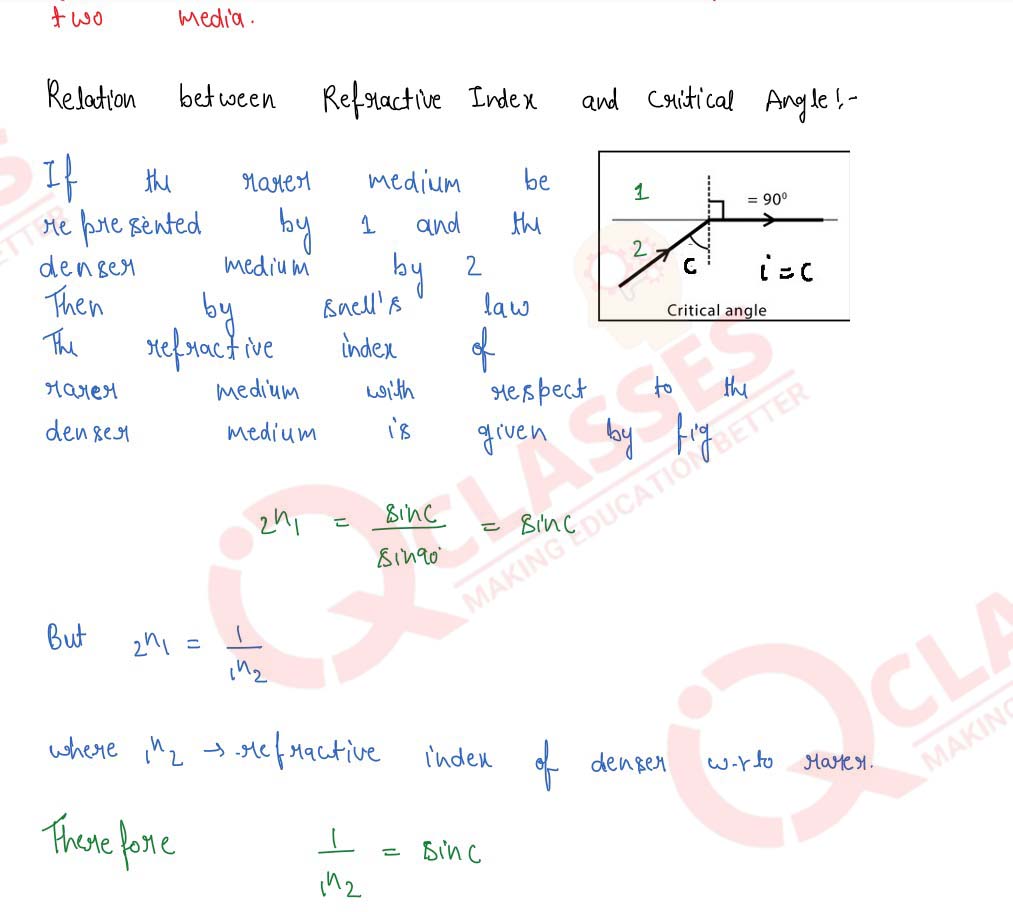 two media.
Relation between Refractive Index and Critical Angle:-
If the rarer medium be
represented by 1 and the
denser medium by 2
Then by snell's law
The refractive index of
rarer medium with respect to the
denser medium is given by fig
1
= 90⁰
2
C
i = C
Critical angle
₂n₁ = sinC / sin90° = sinC
But ₂n₁ = 1 / ₁n₂
where ₁n₂ → refractive index of denser w.r to rarer.
Therefore 1 / ₁n₂ = sinC
CLASSES
MAKING EDUCATION BETTER
CLA
MAKING